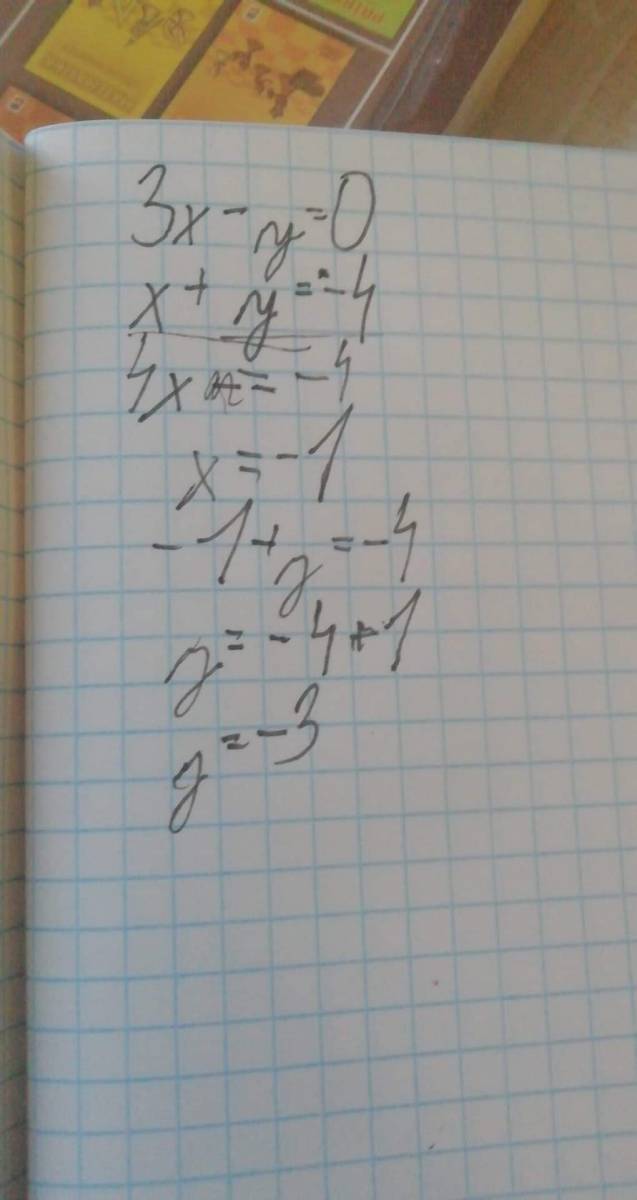 3x - y = 0
x + y = -4
4x = -4
x = -1
-1 + y = -4
y = -4 + 1
y = -3